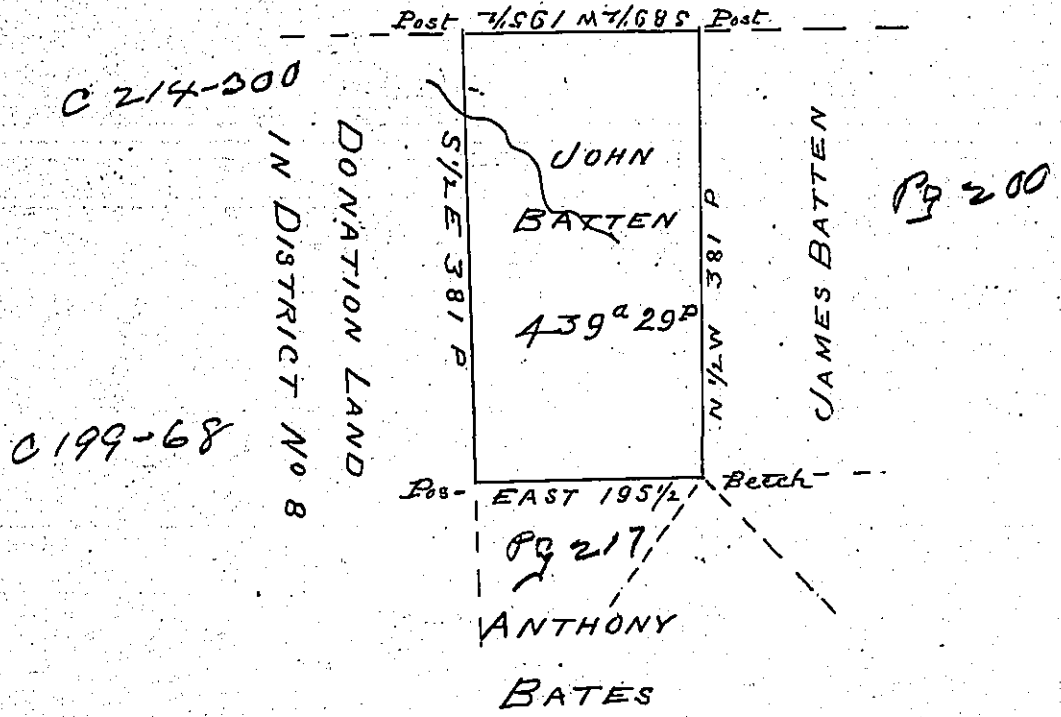 Post S89½W 195½ Post
C 214-300
DONATION LAND
IN DISTRICT No 8
C 199-68
S½E 381 P
JOHN
BATTEN
439a 29p
N½W 381 P
JAMES BATTEN
Pg 200
Pos- EAST 195½ Beech
Pg 217
ANTHONY
BATES